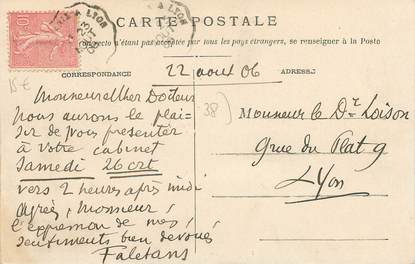 CARTE POSTALE
recto n'étant pas acceptée par tous les pays étrangers, se renseigner à la Poste
CORRESPONDANCE
ADRESSE
22 aout 06
15€
38)
Monsieur et cher Docteur
Nous aurons le plai-
sir de vous présenter
à votre cabinet
Samedi 26 crt
vers 2 heures après midi
Agrées, Monsieur,
l'expression de mes
sentiments bien devoués
Faletans
Monsieur le Dr Loison
9 rue du Plat 9
Lyon
A LYON
10